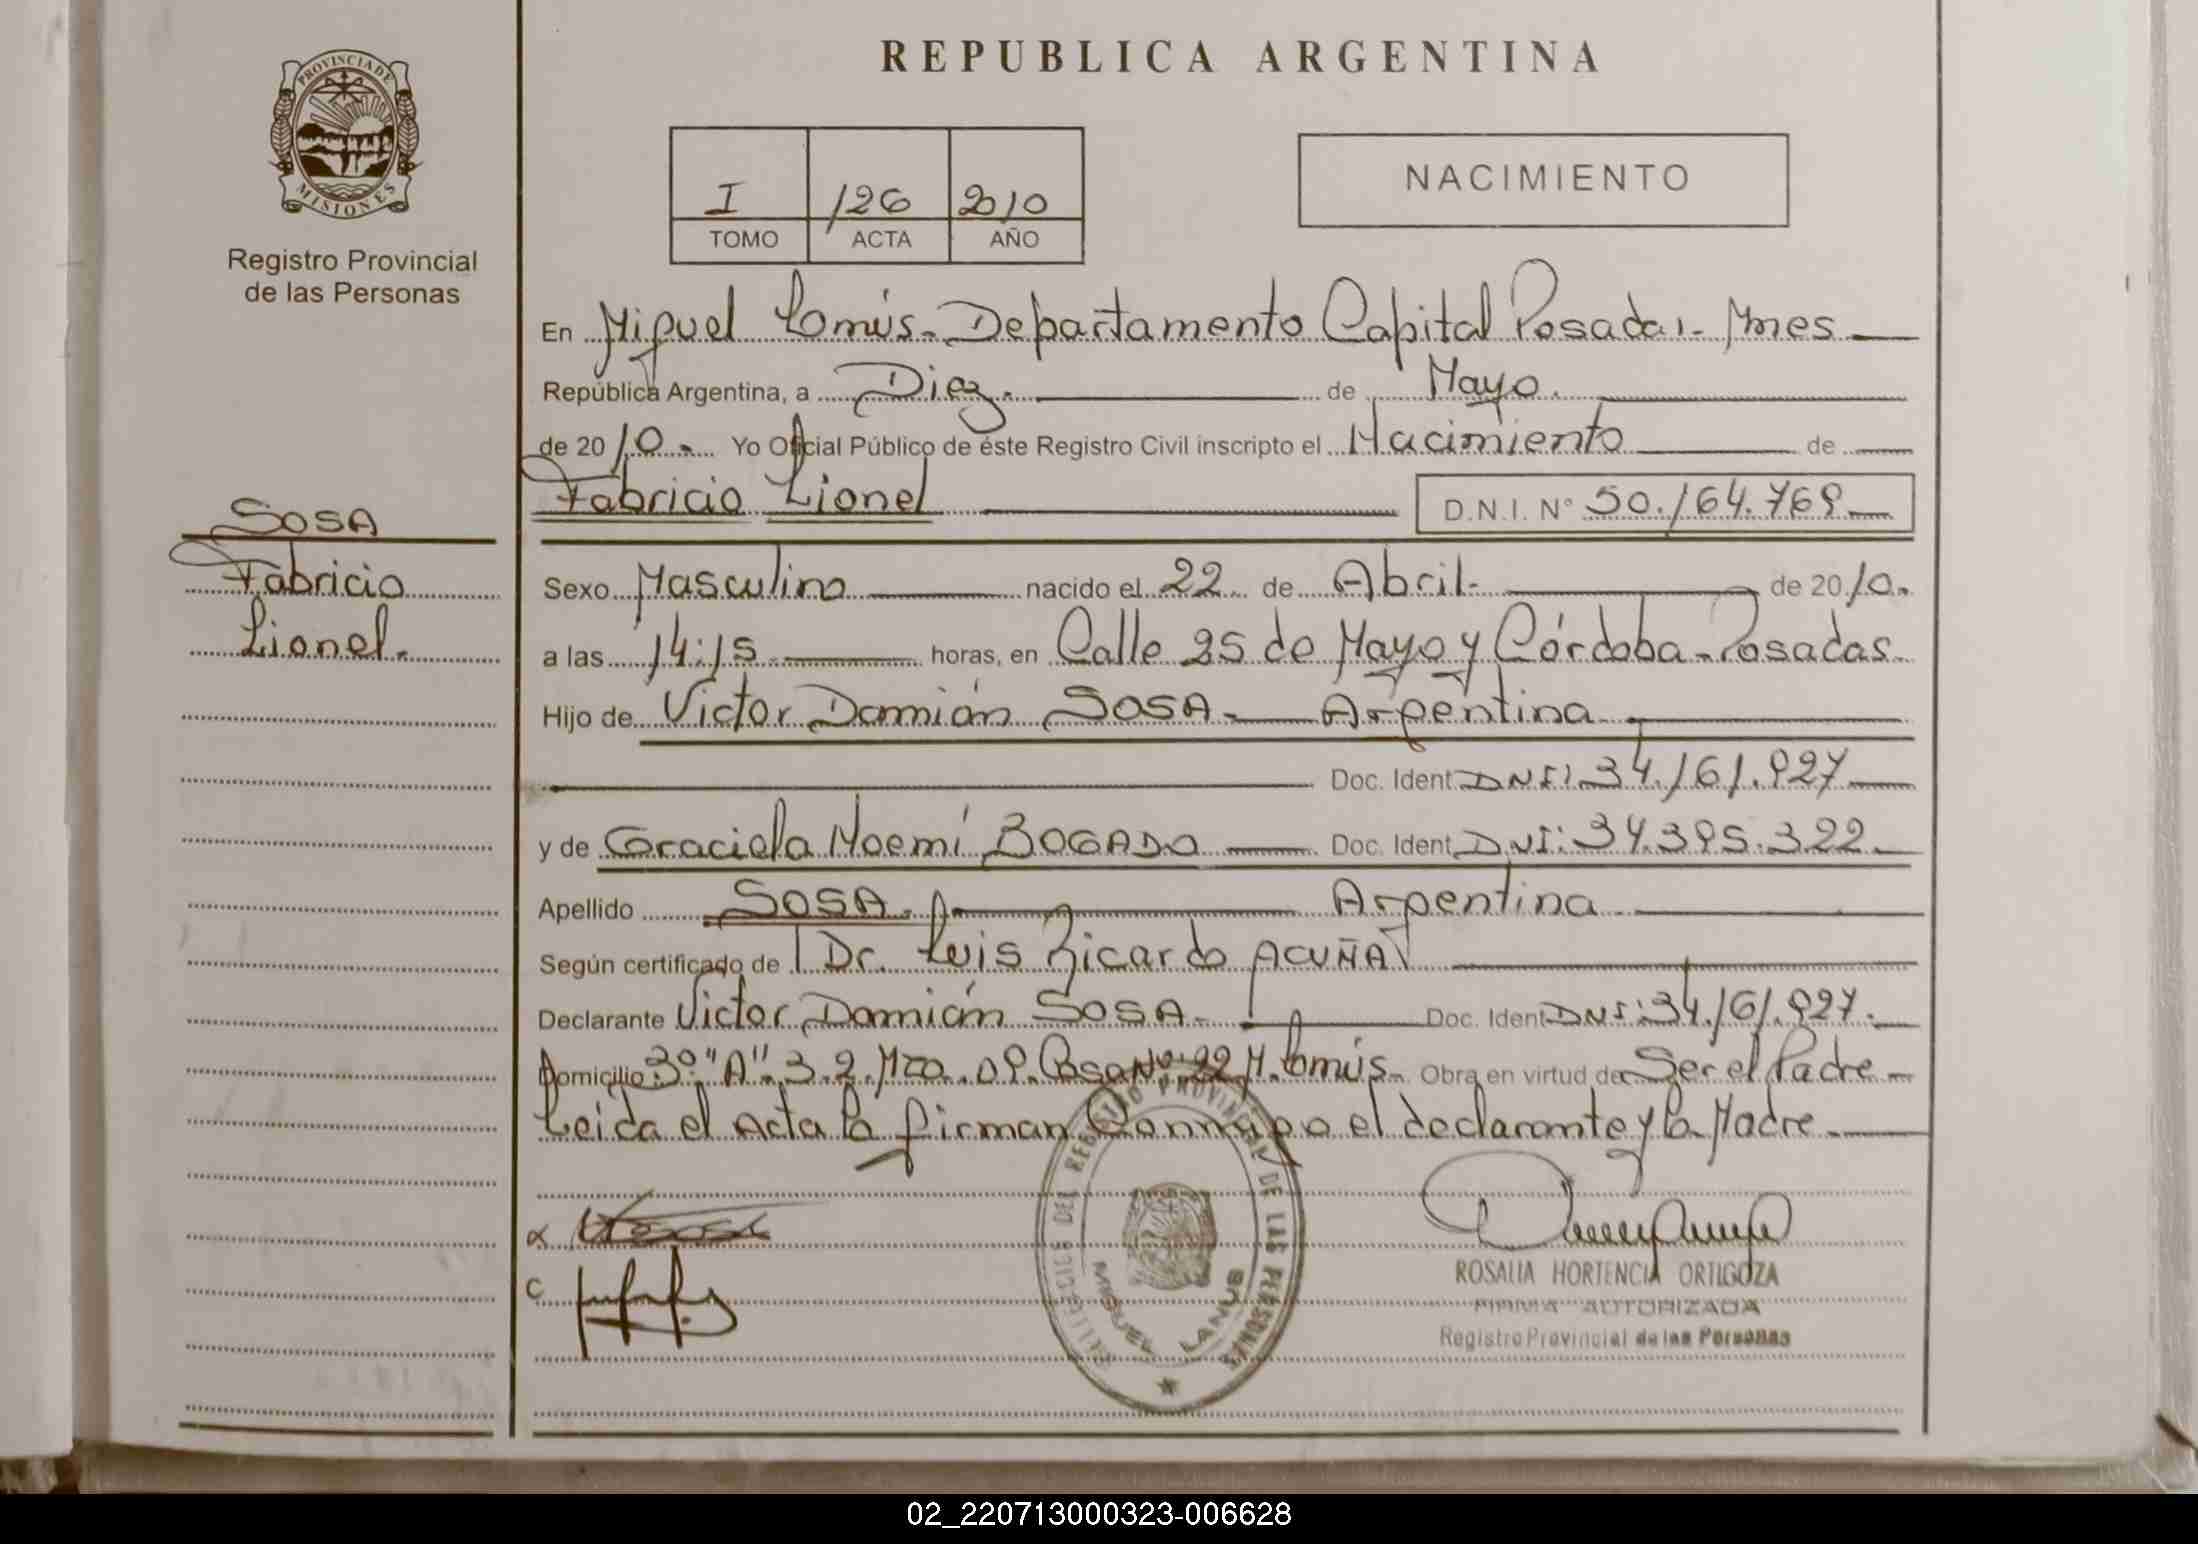 REPUBLICA ARGENTINA
PROVINCIA DE
MISIONES
Registro Provincial
de las Personas
I /26 2010
TOMO ACTA AÑO
NACIMIENTO
En Miguel Lanús - Departamento Capital Posadas - Mnes
República Argentina, a Diez. de Mayo.
de 2010. Yo Oficial Público de éste Registro Civil inscripto el Nacimiento de
Fabricio Lionel D.N.I. N° 50.164.769
SOSA
Fabricio
Lionel.
Sexo Masculino nacido el 22 de Abril de 2010.
a las 14:15 horas, en Calle 25 de Mayo y Córdoba - Posadas
Hijo de Victor Damián SOSA - Argentina
Doc. Ident DNI: 34.161.927
y de Graciela Noemí BOGADO Doc. Ident DNI: 34.395.322
Apellido SOSA. Argentina
Según certificado de Dr. Luis Ricardo ACUÑA
Declarante Victor Damián SOSA - Doc. Ident DNI: 34.161.927.
Domicilio 3° "A" 3.2. Mza. 09. Casa N° 22 M. Lanús - Obra en virtud de Ser el Padre
Leida el Acta la firman Conmigo el declarante y la Madre
DEL REGISTRO PROVINCIAL DE LAS PERSONAS
MIGUEL LANUS
ROSALIA HORTENCIA ORTIGOZA
FIRMA AUTORIZADA
Registro Provincial de las Personas
02_220713000323-006628